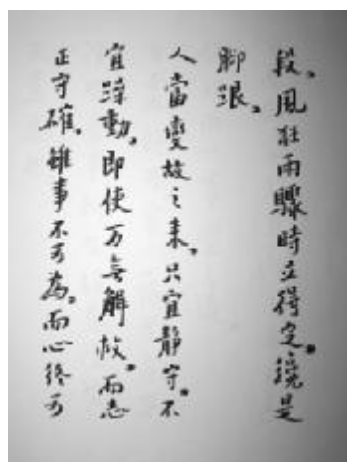 段。風狂雨驟時立得定。纔是
脚跟。
人當變故之来。只宜静守。不
宜躁動。即使万無解救。而志
正守確。雖事不可為。而心終可